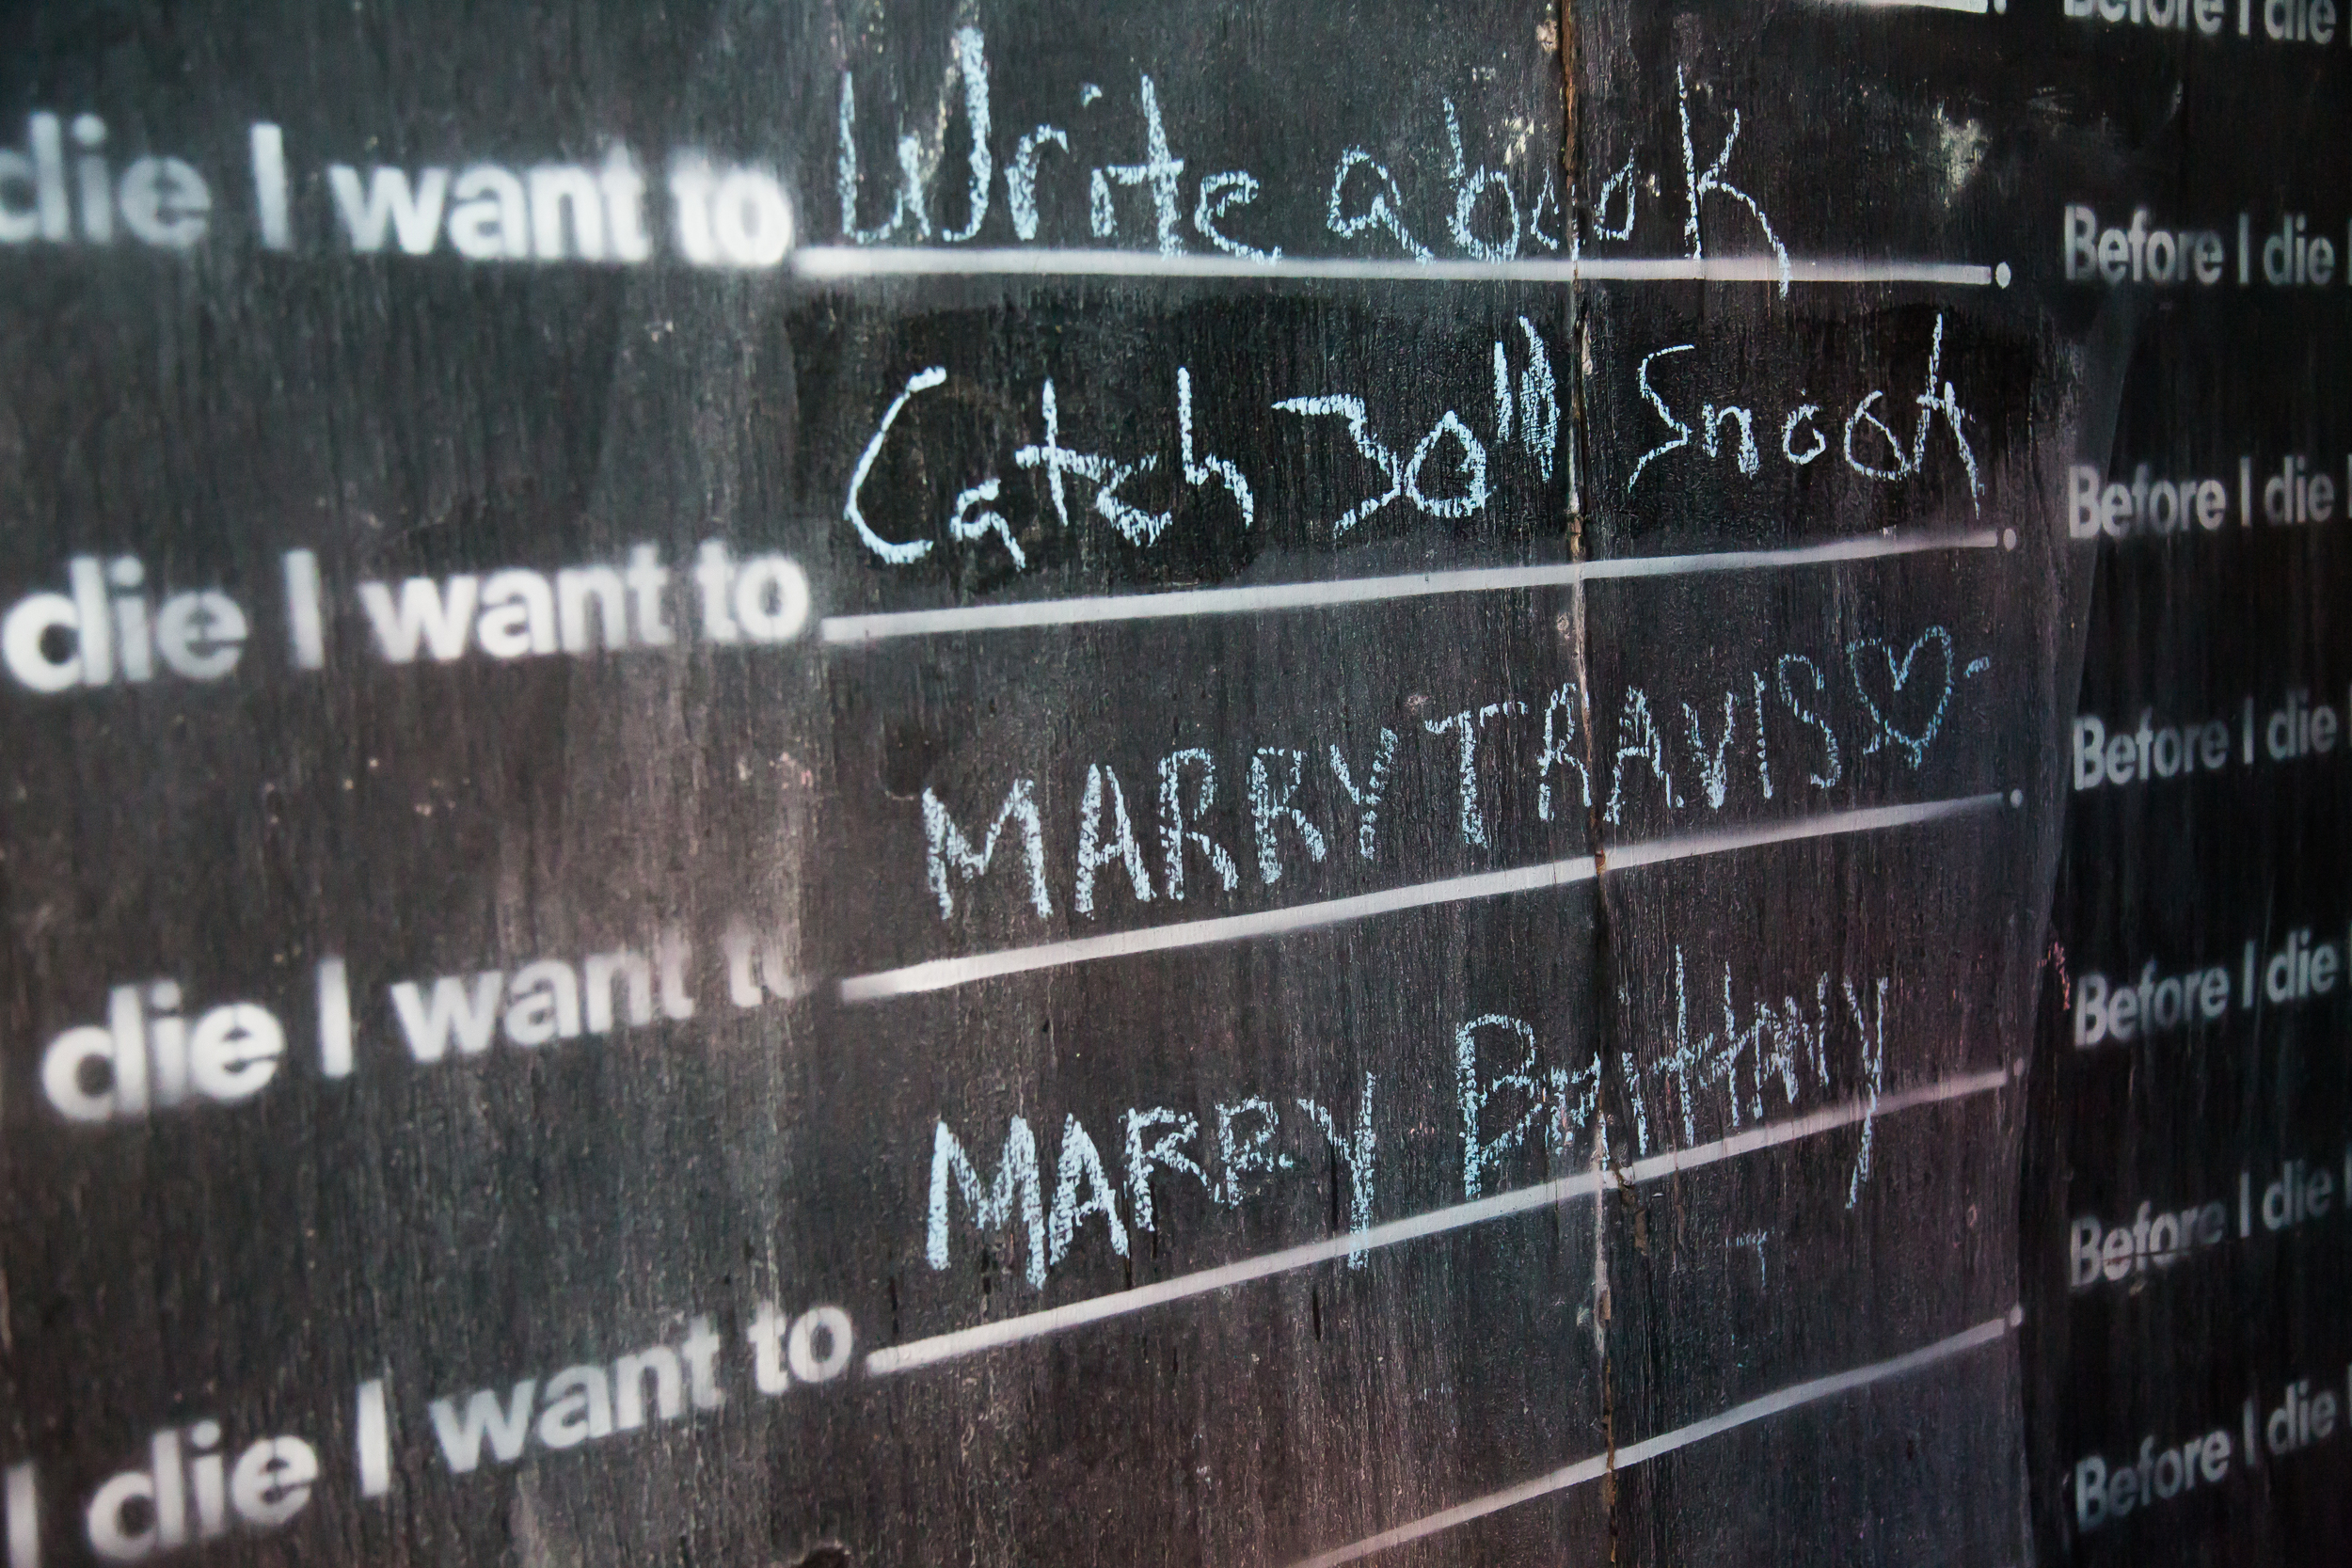 Before I die
die I want to Write a book.
Before I die
die I want to Catch 30" Snook.
Before I die
die I want to MARRY TRAVIS♡.
Before I die
die I want to MARRY Brittany.
Before I die
I die I want to
Before I die
Before I die